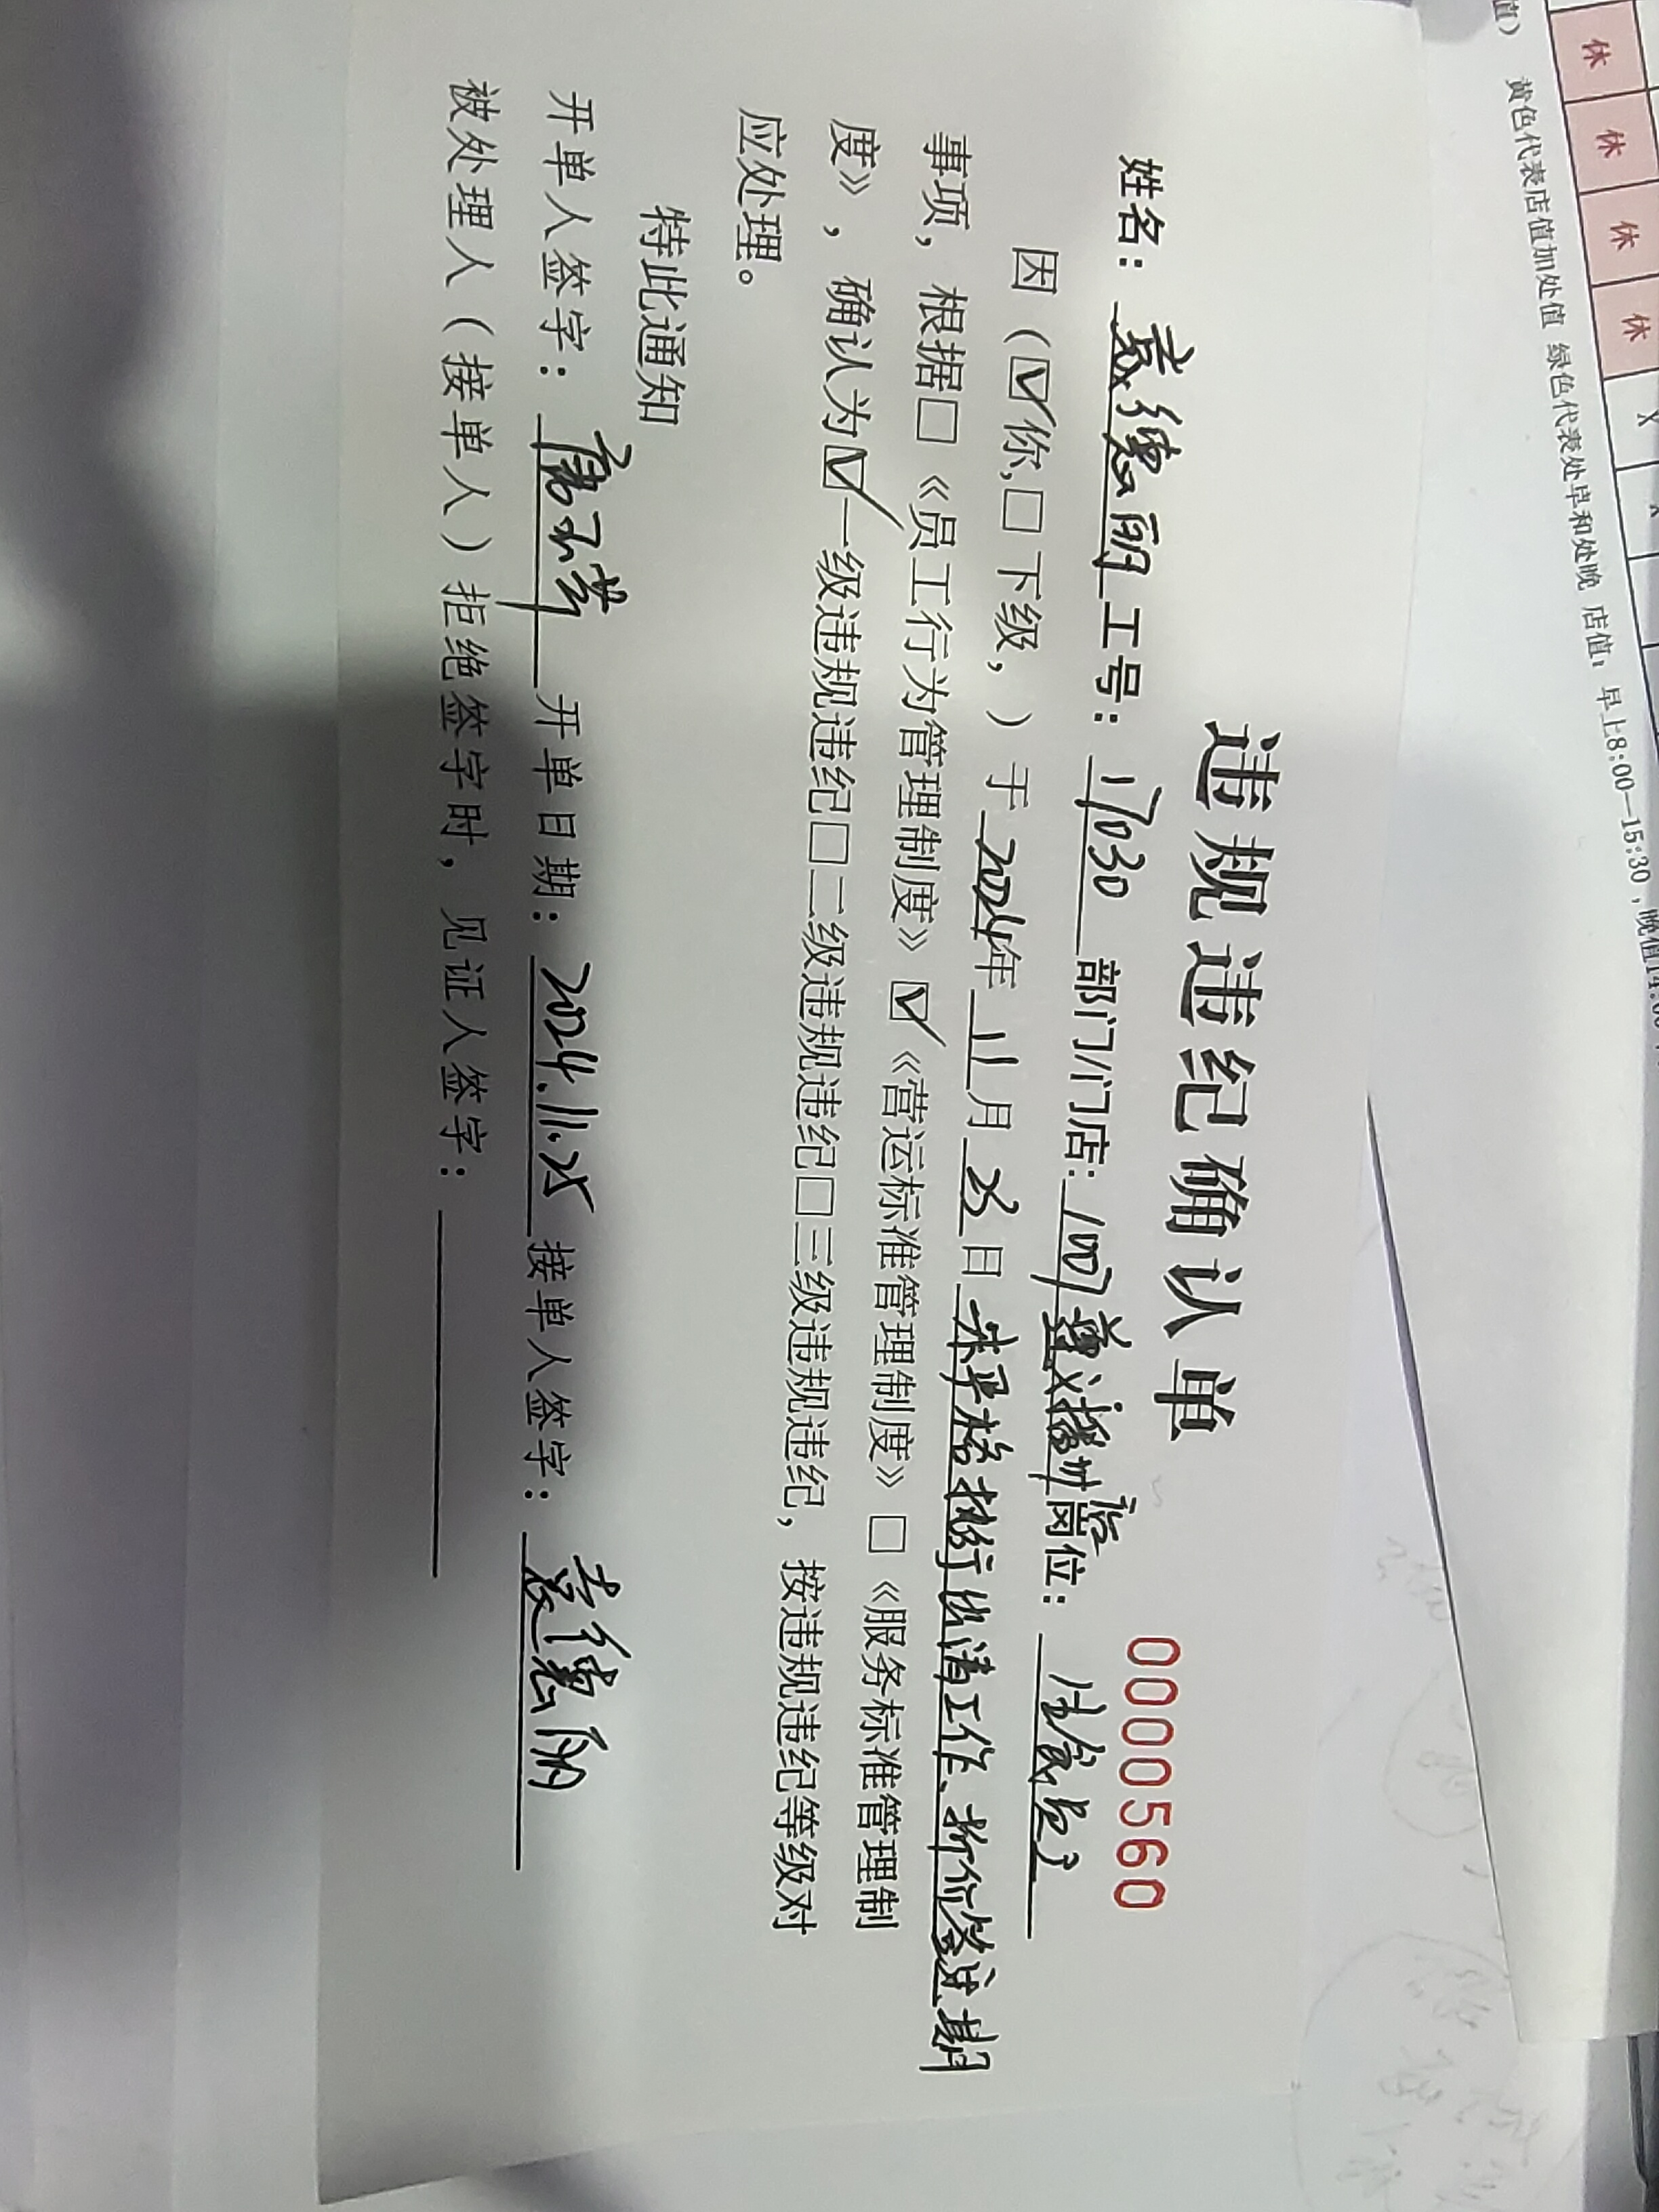 违规违纪确认单
0000560
姓名：袁德丽 工号：17030 部门/门店：1007遵义播州店 岗位：
因（☑你,□下级，）于2024年11月23日未严格执行出清工作、折价签过期
事项，根据□《员工行为管理制度》☑《营运标准管理制度》□《服务标准管理制
度》，确认为☑一级违规违纪□二级违规违纪□三级违规违纪，按违规违纪等级对
应处理。
特此通知
开单人签字： 开单日期：2024.11.25 接单人签字：袁德丽
被处理人（接单人）拒绝签字时，见证人签字：
休 休 休 休 X
值） 黄色代表店值加处值 绿色代表处早和处晚 店值：早上8:00—15:30，晚值14:00